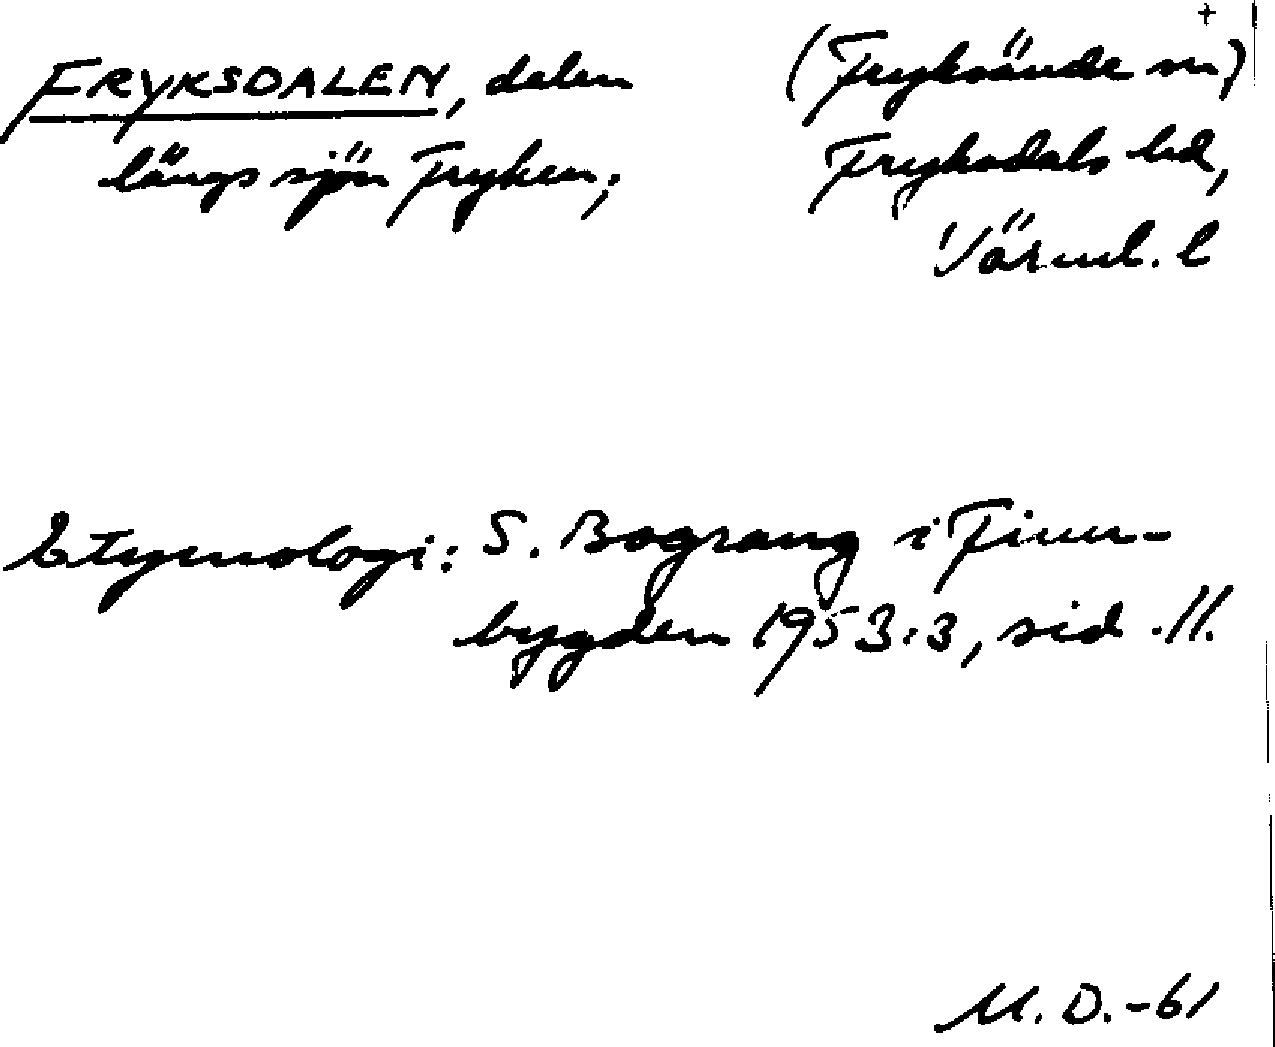 FRYKSDALEN, dalen
längs sjön Fryken;
(Fryksände sn)
Fryksdals hd,
Värml. l
Etymologi: S. Bograng i Finn-
bygden 1953:3, sid. 11.
M.D.-61